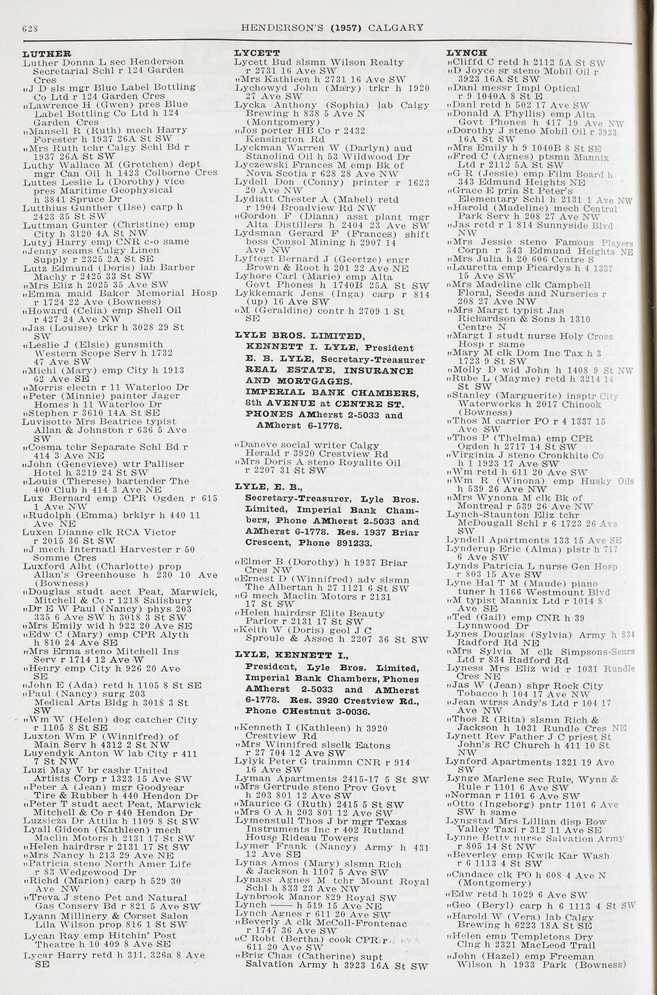 628
HENDERSON'S (1957) CALGARY
LUTHER
Luther Donna L sec Henderson
Secretarial Schl r 124 Garden
Cres
„J D sls mgr Blue Label Bottling
Co Ltd r 124 Garden Cres
„Lawrence H (Gwen) pres Blue
Label Bottling Co Ltd h 124
Garden Cres
„Mansell R (Ruth) mech Harry
Forester h 1937 26A St SW
„Mrs Ruth tchr Calgy Schl Bd r
1937 26A St SW
Luthy Wallace M (Gretchen) dept
mgr Can Oil h 1423 Colborne Cres
Luttes Leslie L (Dorothy) vice
pres Maritime Geophysical
h 3841 Spruce Dr
Lutthius Gunther (Ilse) carp h
2423 35 St SW
Luttman Gunter (Christine) emp
City h 3120 4A St NW
Lutyj Harry emp CNR c-o same
„Jenny seams Calgy Linen
Supply r 2325 2A St SE
Lutz Edmund (Doris) lab Barber
Machy r 2425 33 St SW
„Mrs Eliz h 2025 35 Ave SW
„Emma maid Baker Memorial Hosp
r 1724 22 Ave (Bowness)
„Howard (Celia) emp Shell Oil
r 427 24 Ave NW
„Jas (Louise) trkr h 3028 29 St
SW
„Leslie J (Elsie) gunsmith
Western Scope Serv h 1732
47 Ave SW
„Michl (Mary) emp City h 1913
62 Ave SE
„Morris electn r 11 Waterloo Dr
„Peter (Minnie) painter Jager
Homes h 11 Waterloo Dr
„Stephen r 3610 14A St SE
Luvisotto Mrs Beatrice typist
Allan & Johnston r 636 5 Ave
SW
„Cosma tchr Separate Schl Bd r
414 3 Ave NE
„John (Genevieve) wtr Palliser
Hotel h 3219 24 St SW
„Louis (Therese) bartender The
400 Club h 414 3 Ave NE
Lux Bernard emp CPR Ogden r 615
1 Ave NW
„Rudolph (Emma) brklyr h 440 11
Ave NE
Luxen Dianne clk RCA Victor
r 2015 36 St SW
„J mech Internatl Harvester r 50
Somme Cres
Luxford Albt (Charlotte) prop
Allan's Greenhouse h 230 10 Ave
(Bowness)
„Douglas studt acct Peat, Marwick,
Mitchell & Co r 1218 Salisbury
„Dr E W Paul (Nancy) phys 203
335 6 Ave SW h 3018 3 St SW
„Mrs Emily wid h 922 20 Ave SE
„Edw C (Mary) emp CPR Alyth
h 810 24 Ave SE
„Mrs Erma steno Mitchell Ins
Serv r 1714 12 Ave W
„Henry emp City h 926 20 Ave
SE
„John E (Ada) retd h 1105 8 St SE
„Paul (Nancy) surg 203
Medical Arts Bldg h 3018 3 St
SW
„Wm W (Helen) dog catcher City
r 1105 8 St SE
Luxton Wm F (Winnifred) of
Main Serv h 4312 2 St NW
Luyendyk Anton W lab City r 411
7 St NW
Luzi May V br cashr United
Artists Corp r 1323 15 Ave SW
„Peter A (Jean) mgr Goodyear
Tire & Rubber h 440 Hendon Dr
„Peter T studt acct Peat, Marwick
Mitchell & Co r 440 Hendon Dr
Luzsicza Dr Attila h 1109 8 St SW
Lyall Gideon (Kathleen) mech
Maclin Motors h 2131 17 St SW
„Helen hairdrsr r 2131 17 St SW
„Mrs Nancy h 213 29 Ave NE
„Patricia steno North Amer Life
r 83 Wedgewood Dr
„Richd (Marion) carp h 529 30
Ave NW
„Treva J steno Pet and Natural
Gas Conserv Bd r 821 5 Ave SW
Lyann Millinery & Corset Salon
Lila Wilson prop 816 1 St SW
Lycan Ray emp Hitchin' Post
Theatre h 10 409 8 Ave SE
Lycar Harry retd h 311, 326a 8 Ave
SE
LYCETT
Lycett Bud slsmn Wilson Realty
r 2731 16 Ave SW
„Mrs Kathleen h 2731 16 Ave SW
Lychowyd John (Mary) trkr h 1920
27 Ave SW
Lycka Anthony (Sophia) lab Calgy
Brewing h 838 5 Ave N
(Montgomery)
„Jos porter HB Co r 2432
Kensington Rd
Lyckman Warren W (Darlyn) aud
Stanolind Oil h 53 Wildwood Dr
Lyczewski Frances M emp Bk of
Nova Scotia r 628 28 Ave NW
Lydell Don (Conny) printer r 1623
20 Ave NW
Lydiatt Chester A (Mabel) retd
r 1904 Broadview Rd NW
„Gordon F (Diana) asst plant mgr
Alta Distillers h 2404 23 Ave SW
Lydsman Gerard F (Frances) shift
boss Consol Mining h 2907 14
Ave NW
Lyftogt Bernard J (Geertze) engr
Brown & Root h 201 22 Ave NE
Lyhore Carl (Marie) emp Alta
Govt Phones h 1740B 25A St SW
Lykkemark Jens (Inga) carp r 814
(up) 16 Ave SW
„M (Geraldine) contr h 2709 1 St
SE
LYLE BROS. LIMITED,
KENNETT I. LYLE, President
E. B. LYLE, Secretary-Treasurer
REAL ESTATE, INSURANCE
AND MORTGAGES.
IMPERIAL BANK CHAMBERS,
8th AVENUE at CENTRE ST.
PHONES AMherst 2-5033 and
AMherst 6-1778.
„Daneve social writer Calgy
Herald r 3920 Crestview Rd
„Mrs Doris A steno Royalite Oil
r 2207 31 St SW
LYLE, E. B.,
Secretary-Treasurer, Lyle Bros.
Limited, Imperial Bank Cham-
bers, Phone AMherst 2-5033 and
AMherst 6-1778. Res. 1937 Briar
Crescent, Phone 891233.
„Elmer B (Dorothy) h 1937 Briar
Cres NW
„Ernest D (Winnifred) adv slsmn
The Albertan h 27 1121 6 St SW
„G mech Maclin Motors r 2131
17 St SW
„Helen hairdrsr Elite Beauty
Parlor r 2131 17 St SW
„Keith W (Doris) geol J C
Sproule & Assoc h 2207 36 St SW
LYLE, KENNETT I.,
President, Lyle Bros. Limited,
Imperial Bank Chambers, Phones
AMherst 2-5033 and AMherst
6-1778. Res. 3920 Crestview Rd.,
Phone CHestnut 3-0036.
„Kenneth I (Kathleen) h 3920
Crestview Rd
„Mrs Winnifred slsclk Eatons
r 27 704 12 Ave SW
Lylyk Peter G trainmn CNR r 914
16 Ave SW
Lyman Apartments 2415-17 5 St SW
„Mrs Gertrude steno Prov Govt
h 203 801 12 Ave SW
„Maurice G (Ruth) 2415 5 St SW
„Mrs O A h 203 801 12 Ave SW
Lymenstull Thos J br mgr Texas
Instruments Inc r 402 Rutland
House Rideau Towers
Lymer Frank (Nancy) Army h 431
12 Ave SE
Lynas Amos (Mary) slsmn Rich
& Jackson h 1107 5 Ave SW
Lynass Agnes M tchr Mount Royal
Schl h 833 23 Ave NW
Lynbrook Manor 829 Royal SW
Lynch —— h 519 15 Ave NE
Lynch Agnes r 611 20 Ave SW
„Beverly A clk McColl-Frontenac
r 1747 36 Ave SW
„C Robt (Bertha) cook CPR r
611 20 Ave SW
„Brig Chas (Catherine) supt
Salvation Army h 3923 16A St SW
LYNCH
„Cliffd C retd h 2112 5A St SW
„D Joyce sr steno Mobil Oil r
3923 16A St SW
„Danl messr Impl Optical
r 9 1040A 8 St E
„Danl retd h 502 17 Ave SW
„Donald A (Phyllis) emp Alta
Govt Phones h 417 19 Ave NW
„Dorothy J steno Mobil Oil r 3923
16A St SW
„Mrs Emily h 9 1040B 8 St SE
„Fred C (Agnes) ptsmn Mannix
Ltd r 2112 5A St SW
„G R (Jessie) emp Film Board h
343 Edmund Heights NE
„Grace E prin St Peter's
Elementary Schl h 2131 1 Ave NW
„Harold (Madeline) mech Central
Park Serv h 208 27 Ave NW
„Jas retd r 814 Sunnyside Blvd
NW
„Mrs Jessie steno Famous Players
Corpn r 343 Edmund Heights NE
„Mrs Julia h 20 606 Centre SE
„Lauretta emp Picardys h 4 1337
15 Ave SW
„Mrs Madeline clk Campbell
Floral, Seeds and Nurseries r
208 27 Ave NW
„Mrs Margt typist Jas
Richardson & Sons h 1310
Centre N
„Margt I studt nurse Holy Cross
Hosp r same
„Mary M clk Dom Inc Tax h 3
1723 9 St SW
„Molly D wid John h 1408 9 St NW
„Rube L (Mayme) retd h 3214 14
St SW
„Stanley (Marguerite) insptr City
Waterworks h 2017 Chinook
(Bowness)
„Thos M carrier PO r 4 1337 15
Ave SW
„Thos P (Thelma) emp CPR
Ogden h 2717 14 St SW
„Virginia J steno Cronkhite Co
h 1 1923 17 Ave SW
„Wm retd h 611 20 Ave SW
„Wm R (Winona) emp Husky Oils
h 539 26 Ave NW
„Mrs Wynona M clk Bk of
Montreal r 539 26 Ave NW
Lynch-Staunton Eliz tchr
McDougall Schl r 6 1723 26 Ave
SW
Lyndell Apartments 133 15 Ave SE
Lynderup Eric (Alma) plstr h 717
6 Ave SW
Lynds Patricia L nurse Gen Hosp
r 803 15 Ave SW
Lyne Hal T M (Maude) piano
tuner h 1166 Westmount Blvd
„M typist Mannix Ltd r 1014 8
Ave SE
„Ted (Gail) emp CNR h 39
Lynnwood Dr
Lynes Douglas (Sylvia) Army h 834
Radford Rd NE
„Mrs Sylvia M clk Simpsons-Sears
Ltd r 834 Radford Rd
Lyness Mrs Eliz wid r 1031 Rundle
Cres NE
„Jas W (Jean) shpr Rock City
Tobacco h 104 17 Ave NW
„Jean wtrss Andy's Ltd r 104 17
Ave NW
„Thos R (Rita) slsmn Rich &
Jackson h 1031 Rundle Cres NE
Lynett Rev Father J C priest St
John's RC Church h 411 10 St
NW
Lynford Apartments 1321 19 Ave
SW
Lynge Marlene sec Rule, Wynn &
Rule r 1101 6 Ave SW
„Norman r 1101 6 Ave SW
„Otto (Ingeborg) pntr 1101 6 Ave
SW h same
Lyngstad Mrs Lillian disp Bow
Valley Taxi r 312 11 Ave SE
Lynne Betty nurse Salvation Army
r 805 14 St NW
„Beverley emp Kwik Kar Wash
r 6 1113 4 St SW
„Candace clk PO h 608 4 Ave N
(Montgomery)
„Edw retd h 1029 6 Ave SW
„Geo (Beryl) carp h 6 1113 4 St SW
„Harold W (Vera) lab Calgy
Brewing h 6223 18A St SE
„Helen emp Templetons Dry
Clng h 2321 MacLeod Trail
„John (Hazel) emp Freeman
Wilson h 1933 Park (Bowness)